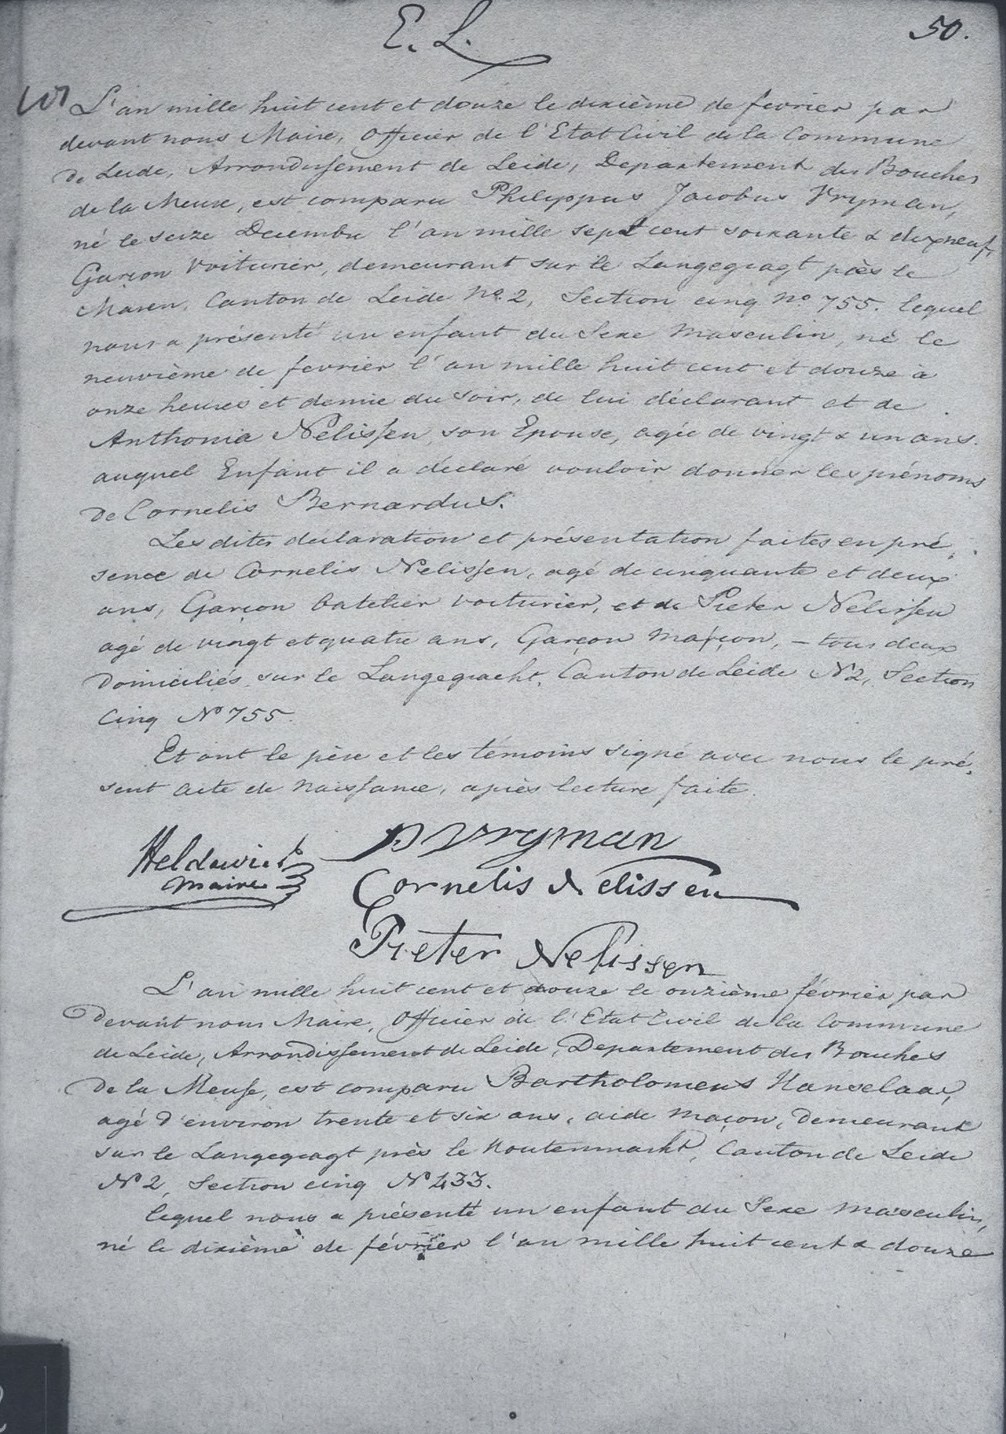 E. L.
50.
L'an mille huit cent et douze le dixième de fevrier par
devant nous Maire, Officier de l'Etat Civil de la Commune
de Leide, Arrondissement de Leide, Departement des Bouches
de la Meuse, est comparu Philippus Jacobus Vryman,
né le seize Decembre l'an mille sept cent soixante & dixneuf,
Garçon Voiturier, demeurant sur le Langegragt près le
Maren, Canton de Leide No. 2, Section cinq no. 755. lequel
nous a présenté un enfant du Sexe masculin, né le
neuvième de fevrier l'an mille huit cent et douze à
onze heures et demie du soir, de lui déclarant et de
Anthonia Nelissen, son Epouse, agée de vingt & un ans.
auquel Enfant il a déclaré vouloir donner les prénoms
de Cornelis Bernardus.
Les dites déclaration et présentation faites en pré,
sence de Cornelis Nelissen, agé de cinquante et deux
ans, Garçon batelier voiturier, et de Pieter Nelissen
agé de vingt et quatre ans, Garçon maçon, – tous deux
Domiciliés sur le Langegracht, Canton de Leide N 2, Section
Cinq No 755.
Et ont le père et les témoins signé avec nous le pré,
sent acte de naissance, après lecture faite.
P Vryman
Heldewier
Maire
Cornelis Nelissen
Pieter Nelissen
L'an mille huit cent et douze le onzième février par
Devant nous Maire, Officier de l'Etat Civil de la Commune
de Leide, Arrondissement de Leide, Departement des Bouches
De la Meuse, est comparu Bartholomeus Hanselaar,
agé d'environ trente et six ans, aide maçon, Demeurant
sur le Langegragt près le Houtenmarkt, Canton de Leide
No 2, Section cinq No 433.
lequel nous a présenté un enfant du Sexe masculin,
né le dixième de février l'an mille huit cent & douze